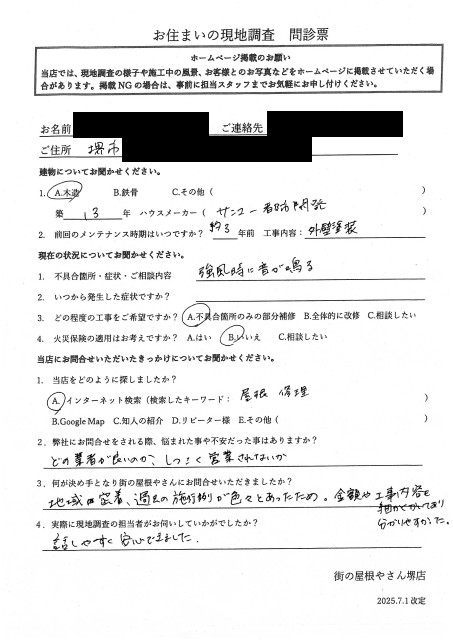 お住まいの現地調査 問診票
ホームページ掲載のお願い
当店では、現地調査の様子や施工中の風景、お客様とのお写真などをホームページに掲載させていただく場
合があります。掲載NGの場合は、事前に担当スタッフまでお気軽にお申し付けください。
お名前 ご連絡先
ご住所 堺市
建物についてお聞かせください。
1. A.木造 B.鉄骨 C.その他( )
築 13 年 ハウスメーカー( サンユー都市開発 )
2. 前回のメンテナンス時期はいつですか? 約3 年前 工事内容: 外壁塗装
現在の状況についてお聞かせください。
1. 不具合箇所・症状・ご相談内容 強風時に音が鳴る
2. いつから発生した症状ですか?
3. どの程度の工事をご希望ですか? A.不具合箇所のみの部分補修 B.全体的に改修 C.相談したい
4. 火災保険の適用はお考えですか? A.はい B.いいえ C.相談したい
当店にお問合せいただいたきっかけについてお聞かせください。
1. 当店をどのように探しましたか?
A.インターネット検索(検索したキーワード: 屋根 修理 )
B.Google Map C.知人の紹介 D.リピーター様 E.その他( )
2. 弊社にお問合せをされる際、悩まれた事や不安だった事はありますか?
どの業者が良いのか、しつこく営業されないか
3. 何が決め手となり街の屋根やさんにお問合せいただきましたか?
地域密着、過去の施行例が色々とあったため。金額や工事内容も
細かくかいており
分かりやすかった。
4. 実際に現地調査の担当者がお伺いしていかがでしたか?
話しやすく安心できました.
街の屋根やさん堺店
2025.7.1 改定